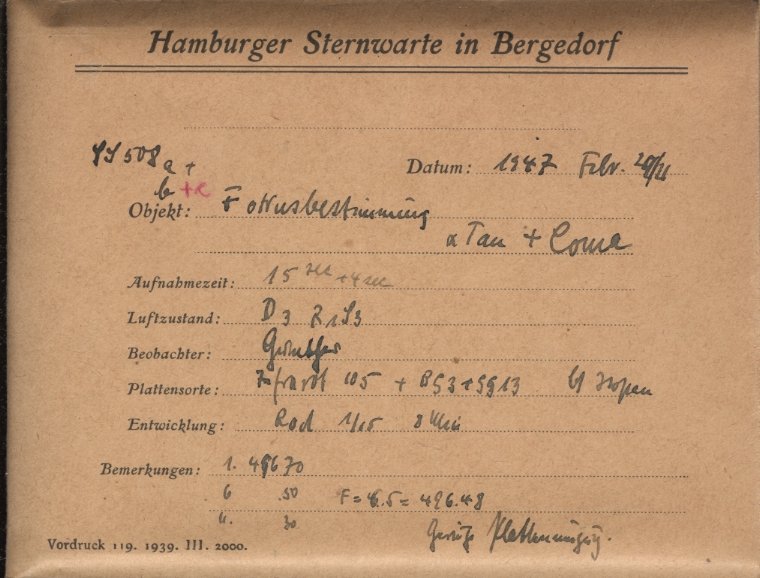 Hamburger Sternwarte in Bergedorf
508 a +
b + c
Datum: 1947 Febr. 20/21
Objekt: Fokusbestimmung
α Tau + Coma
Aufnahmezeit: 15 sec + 4 sec
Luftzustand: D3 Z1 S3
Beobachter:
Plattensorte: 105 + BG3 + GG13
Entwicklung: Rod 1/15 8 Min
Bemerkungen: 1. 49670
6 .50 F = 6.5 = 496.48
11. 30
Vordruck 119. 1939. III. 2000.